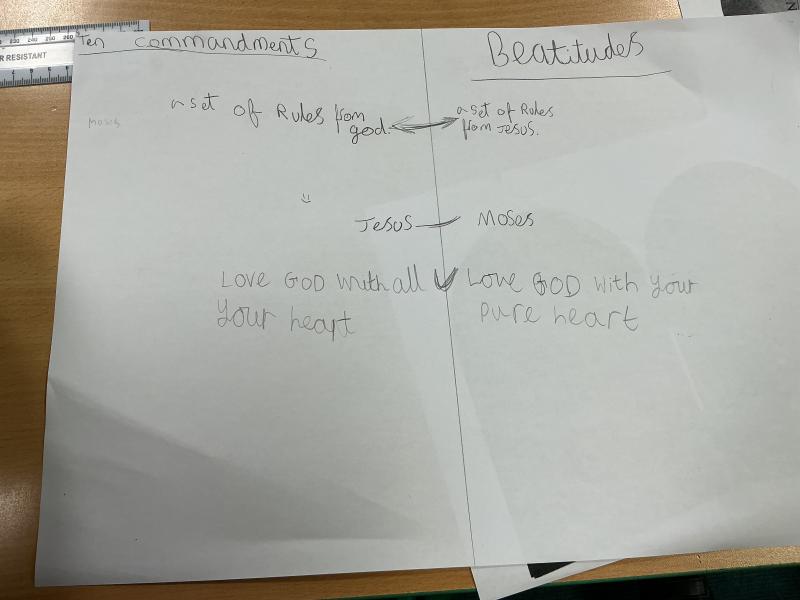 230 240 250 260
R RESISTANT
Ten Commandments
Beatitudes
a set of Rules from
god.
a set of Rules
from Jesus.
Moses
Jesus
Moses
Love GOD with all
your heart
Love GOD with your
pure heart